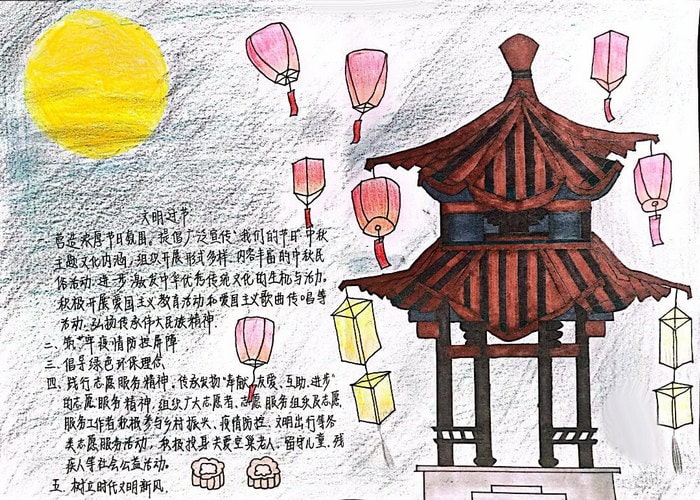 文明过节
一、营造浓厚节日氛围。提倡广泛宣传“我们的节日”中秋
主题文化内涵,组织开展形式多样、内容丰富的中秋民
俗活动,进步激发中华优秀传统文化的生机与活力。
积极开展爱国主义教育活动和爱国主义歌曲传唱等
活动,弘扬传承伟大民族精神.
二、筑牢疫情防控屏障
三、倡导绿色环保理念
四、践行志愿服务精神。传承弘扬“奉献、友爱、互助、进步”
的志愿服务精神,组织广大志愿者、志愿服务组织及志愿
服务工作者积极参与乡村振兴、疫情防控、文明出行等各
类志愿服务活动,积极投身关爱空巢老人、留守儿童、残
疾人等社会公益活动。
五、树立时代文明新风.